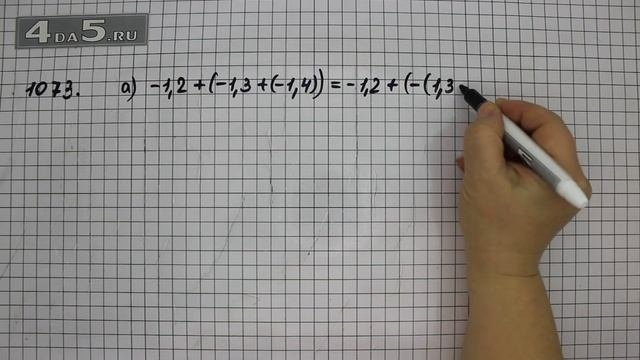 4DA5.RU
1073. а) -1,2 + (-1,3 + (-1,4)) = -1,2 + (-(1,3